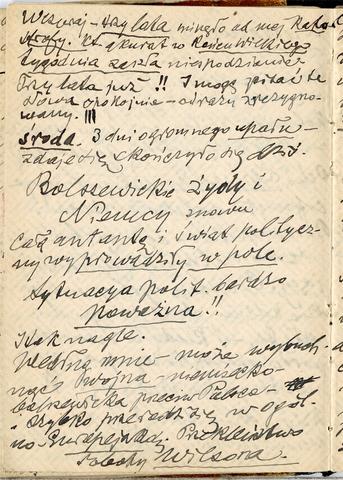 Wczoraj – trzy lata minęło od mej Kata-
strofy. Kt. akurat w
tygodnia zeszła niespodzianie
Trzy lata już!! I mogę pisać te
słowa spokojnie – od razu zrezygno-
wany. !!!
Środa. 3 dni ogromnego upału –
zdaje się skończyło się dziś.
Bolszewickie Żydy i
Niemcy znowu
całą antantę i świat politycz-
ny wyprowadziły w pole.
sytuacya polit. bardzo
poważna!!
I tak nagle.
Według mnie – może wybuch-
nąć wojna – niemiecko-
bolszewicka przeciw Polsce –
i szybko przerodzi się w ogól-
no Europejską. Przekleństwo
Wilsona.